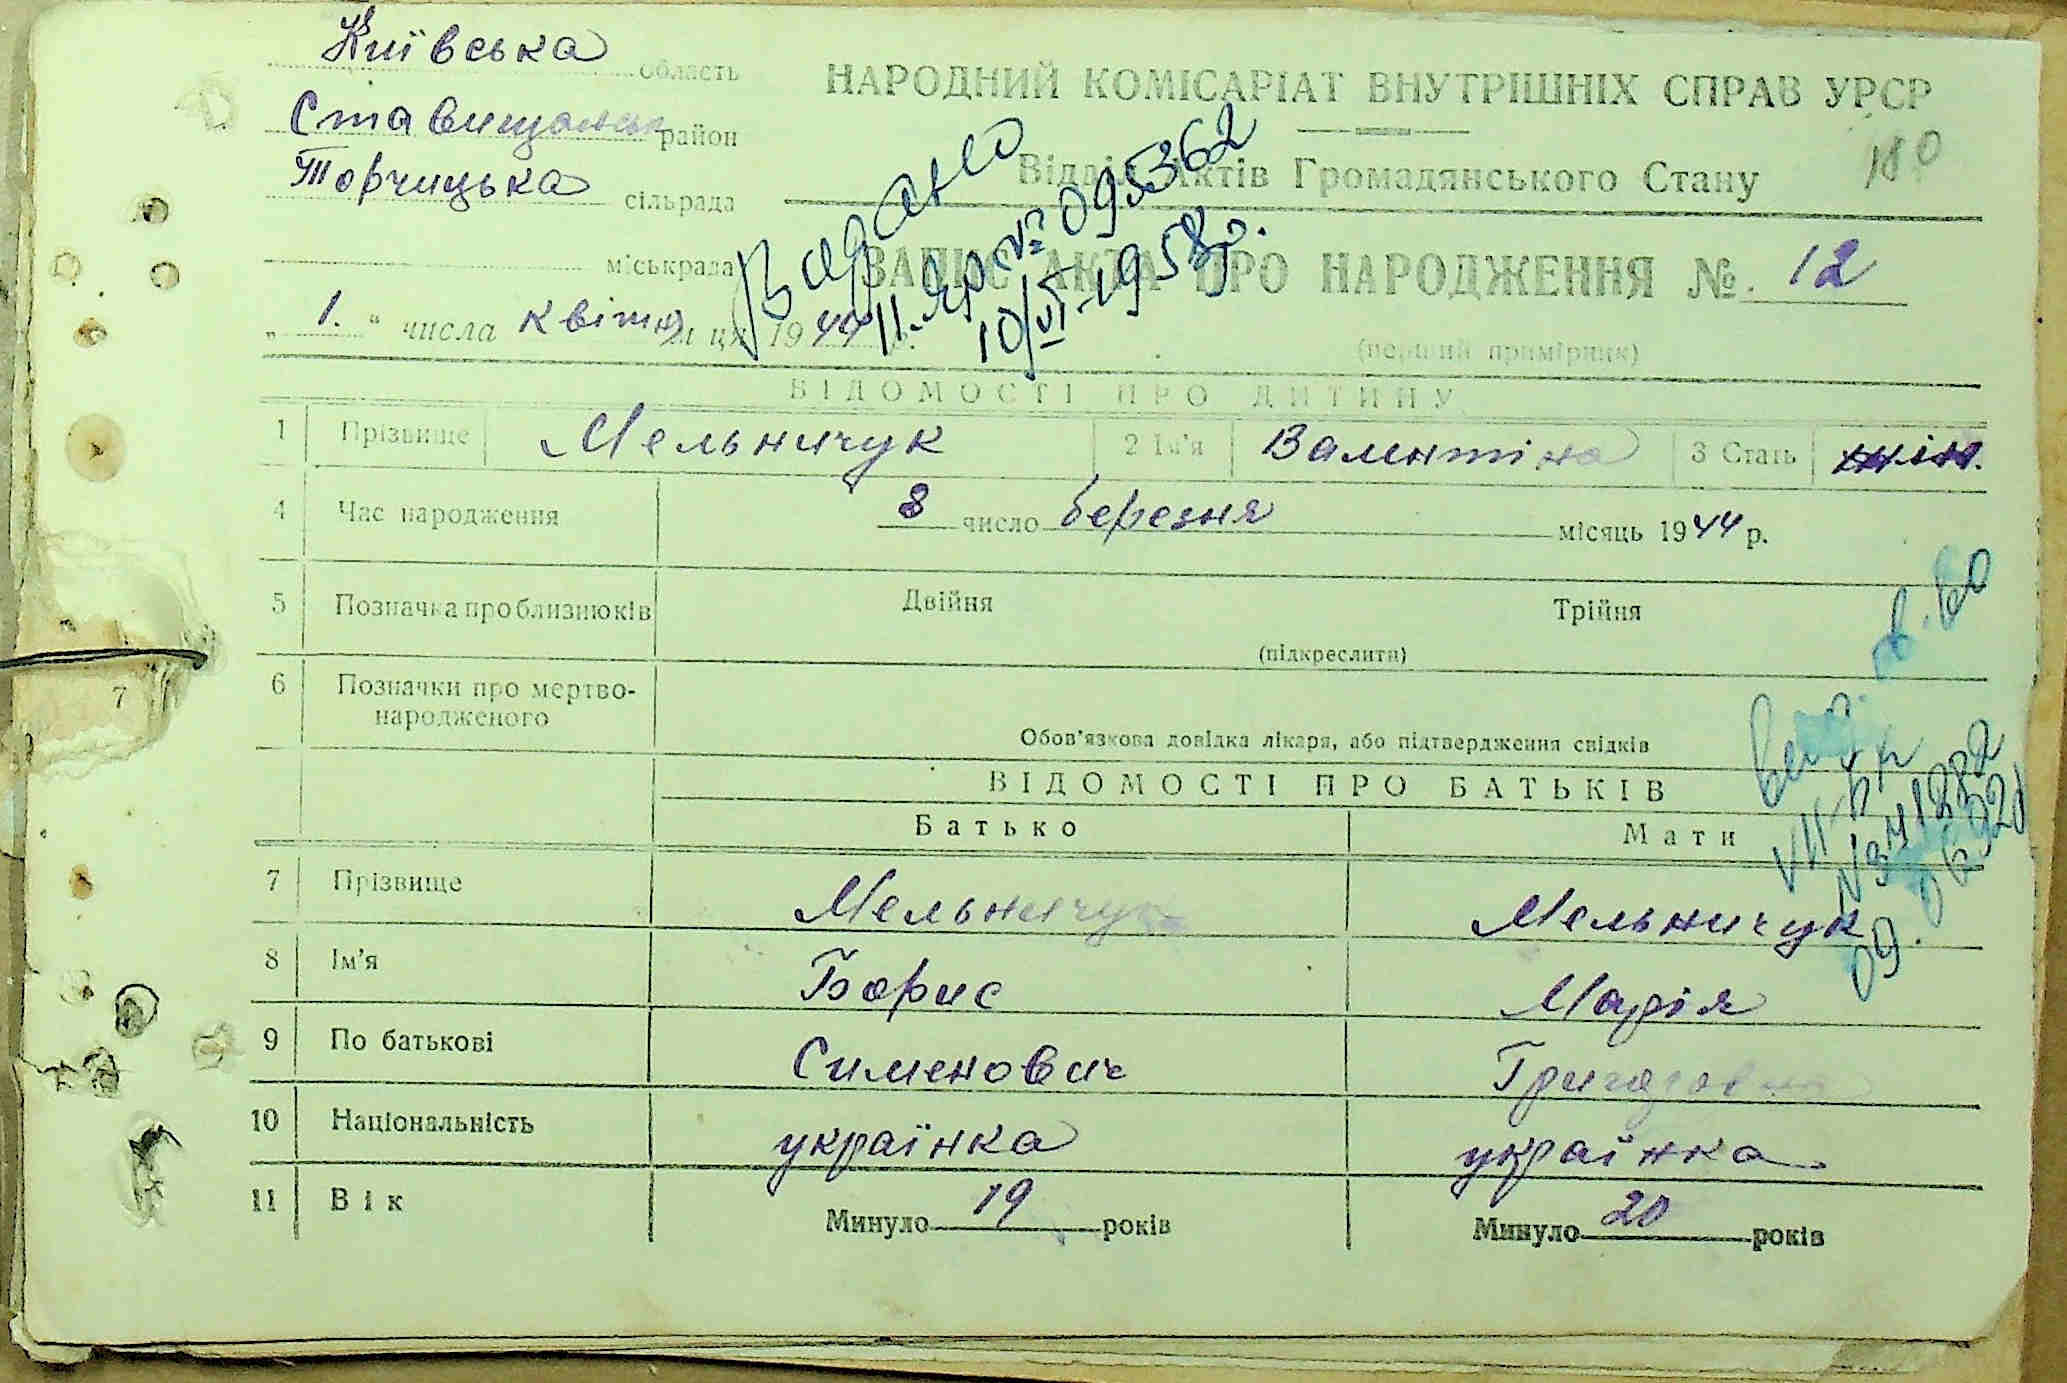 Київська область
Ставищанськ район
Торчицька сільрада
міськрада
„ 1. “ числа квітня м ця 1944
НАРОДНИЙ КОМІСАРІАТ ВНУТРІШНІХ СПРАВ УРСР
180
Відділ Актів Громадянського Стану
ЗАПИС АКТА ПРО НАРОДЖЕННЯ №. 12
(перший примірник)
Видано
ІІ-ЯР № 095362
10/VI-1958р.
ВІДОМОСТІ ПРО ДИТИНУ
1 Прізвище Мельничук 2 Ім'я Валентіна 3 Стать жін.
4 Час народження 8 число березня місяць 1944 р.
5 Позначка про близнюків Двійня Трійня
(підкреслити)
6 Позначки про мертво-
народженого
Обов'язкова довідка лікаря, або підтвердження свідків
ВІДОМОСТІ ПРО БАТЬКІВ
Батько Мати
7 Прізвище Мельничук Мельничук
8 Ім'я Борис Марія
9 По батькові Сименович Григоровна
10 Національність українка українка
11 Вік Минуло 19 років Минуло 20 років
7